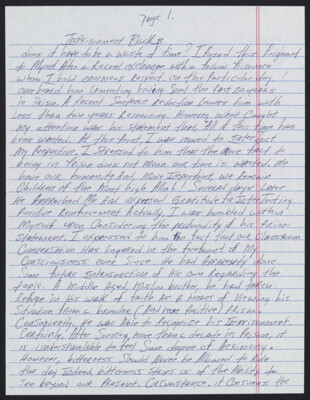 Page 1.
Imprisonment Blacks
does it have to be a waste of time? I posed this poignant
to myself after a recent exchange with a fellow prisoner
whom I hold enormous respect. On this particular day, I
overheard him lamenting having spent the last 20 years
in prison. A recent sentence reduction leaves him with
less than two years remaining. However, what caught
my attention was his statement that all of this time has
been wasted. At this point, I was moved to interject
my perspective. I expressed to him that the mere fact to
being in prison does not mean our time is wasted. We
have our humanity and, more important, we remain
children of the most high Allah! Several days later
he approached me and expressed gratitude to interjecting
positive reinforcement. Actually, I was humbled within
myself upon considering the profundity of his prior
statement. I expressed to him the fact that our
conversation has lingered in the forefront of my
consciousness ever since. He had apparently done
some future introspection of his own regarding the
topic. A middle aged Muslim brother, he had taken
refuge in his walk of faith as a means of viewing his
situation from a broader (and more positive) prism.
Consequently, he was able to recognize his imprisonment.
Certainly, after serving more than a decade in prison, it
is understandable to feel some degree of acrimony.
However, bitterness should never be allowed to rule
the day. Indeed, bitterness strips us of the ability to
see beyond our present circumstance. It consumes the